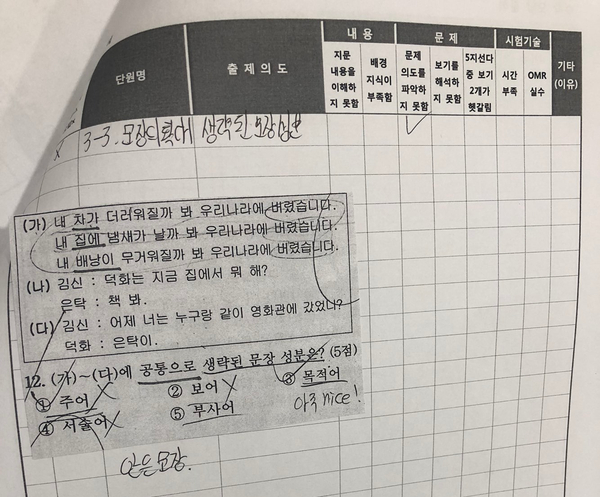 내용 문제 시험기술
단원명 출제의도 지문 내용을 이해하지 못함 배경 지식이 부족함 문제 의도를 파악하지 못함 보기를 해석하지 못함 5지선다 중 보기 2개가 헷갈림 시간 부족 OMR 실수 기타 (이유)
3-3. 문장의 확대 생략된 문장성분
(가) 내 차가 더러워질까 봐 우리나라에 버렸습니다.
내 집에 냄새가 날까 봐 우리나라에 버렸습니다.
내 배낭이 무거워질까 봐 우리나라에 버렸습니다.
(나) 김신 : 덕화는 지금 집에서 뭐 해?
은탁 : 책 봐.
(다) 김신 : 어제 너는 누구랑 같이 영화관에 갔었니?
덕화 : 은탁이.
12. (가)~(다)에 공통으로 생략된 문장 성분은? (5점)
① 주어 ② 보어 ③ 목적어
④ 서술어 ⑤ 부사어
아주 nice!
안은문장.